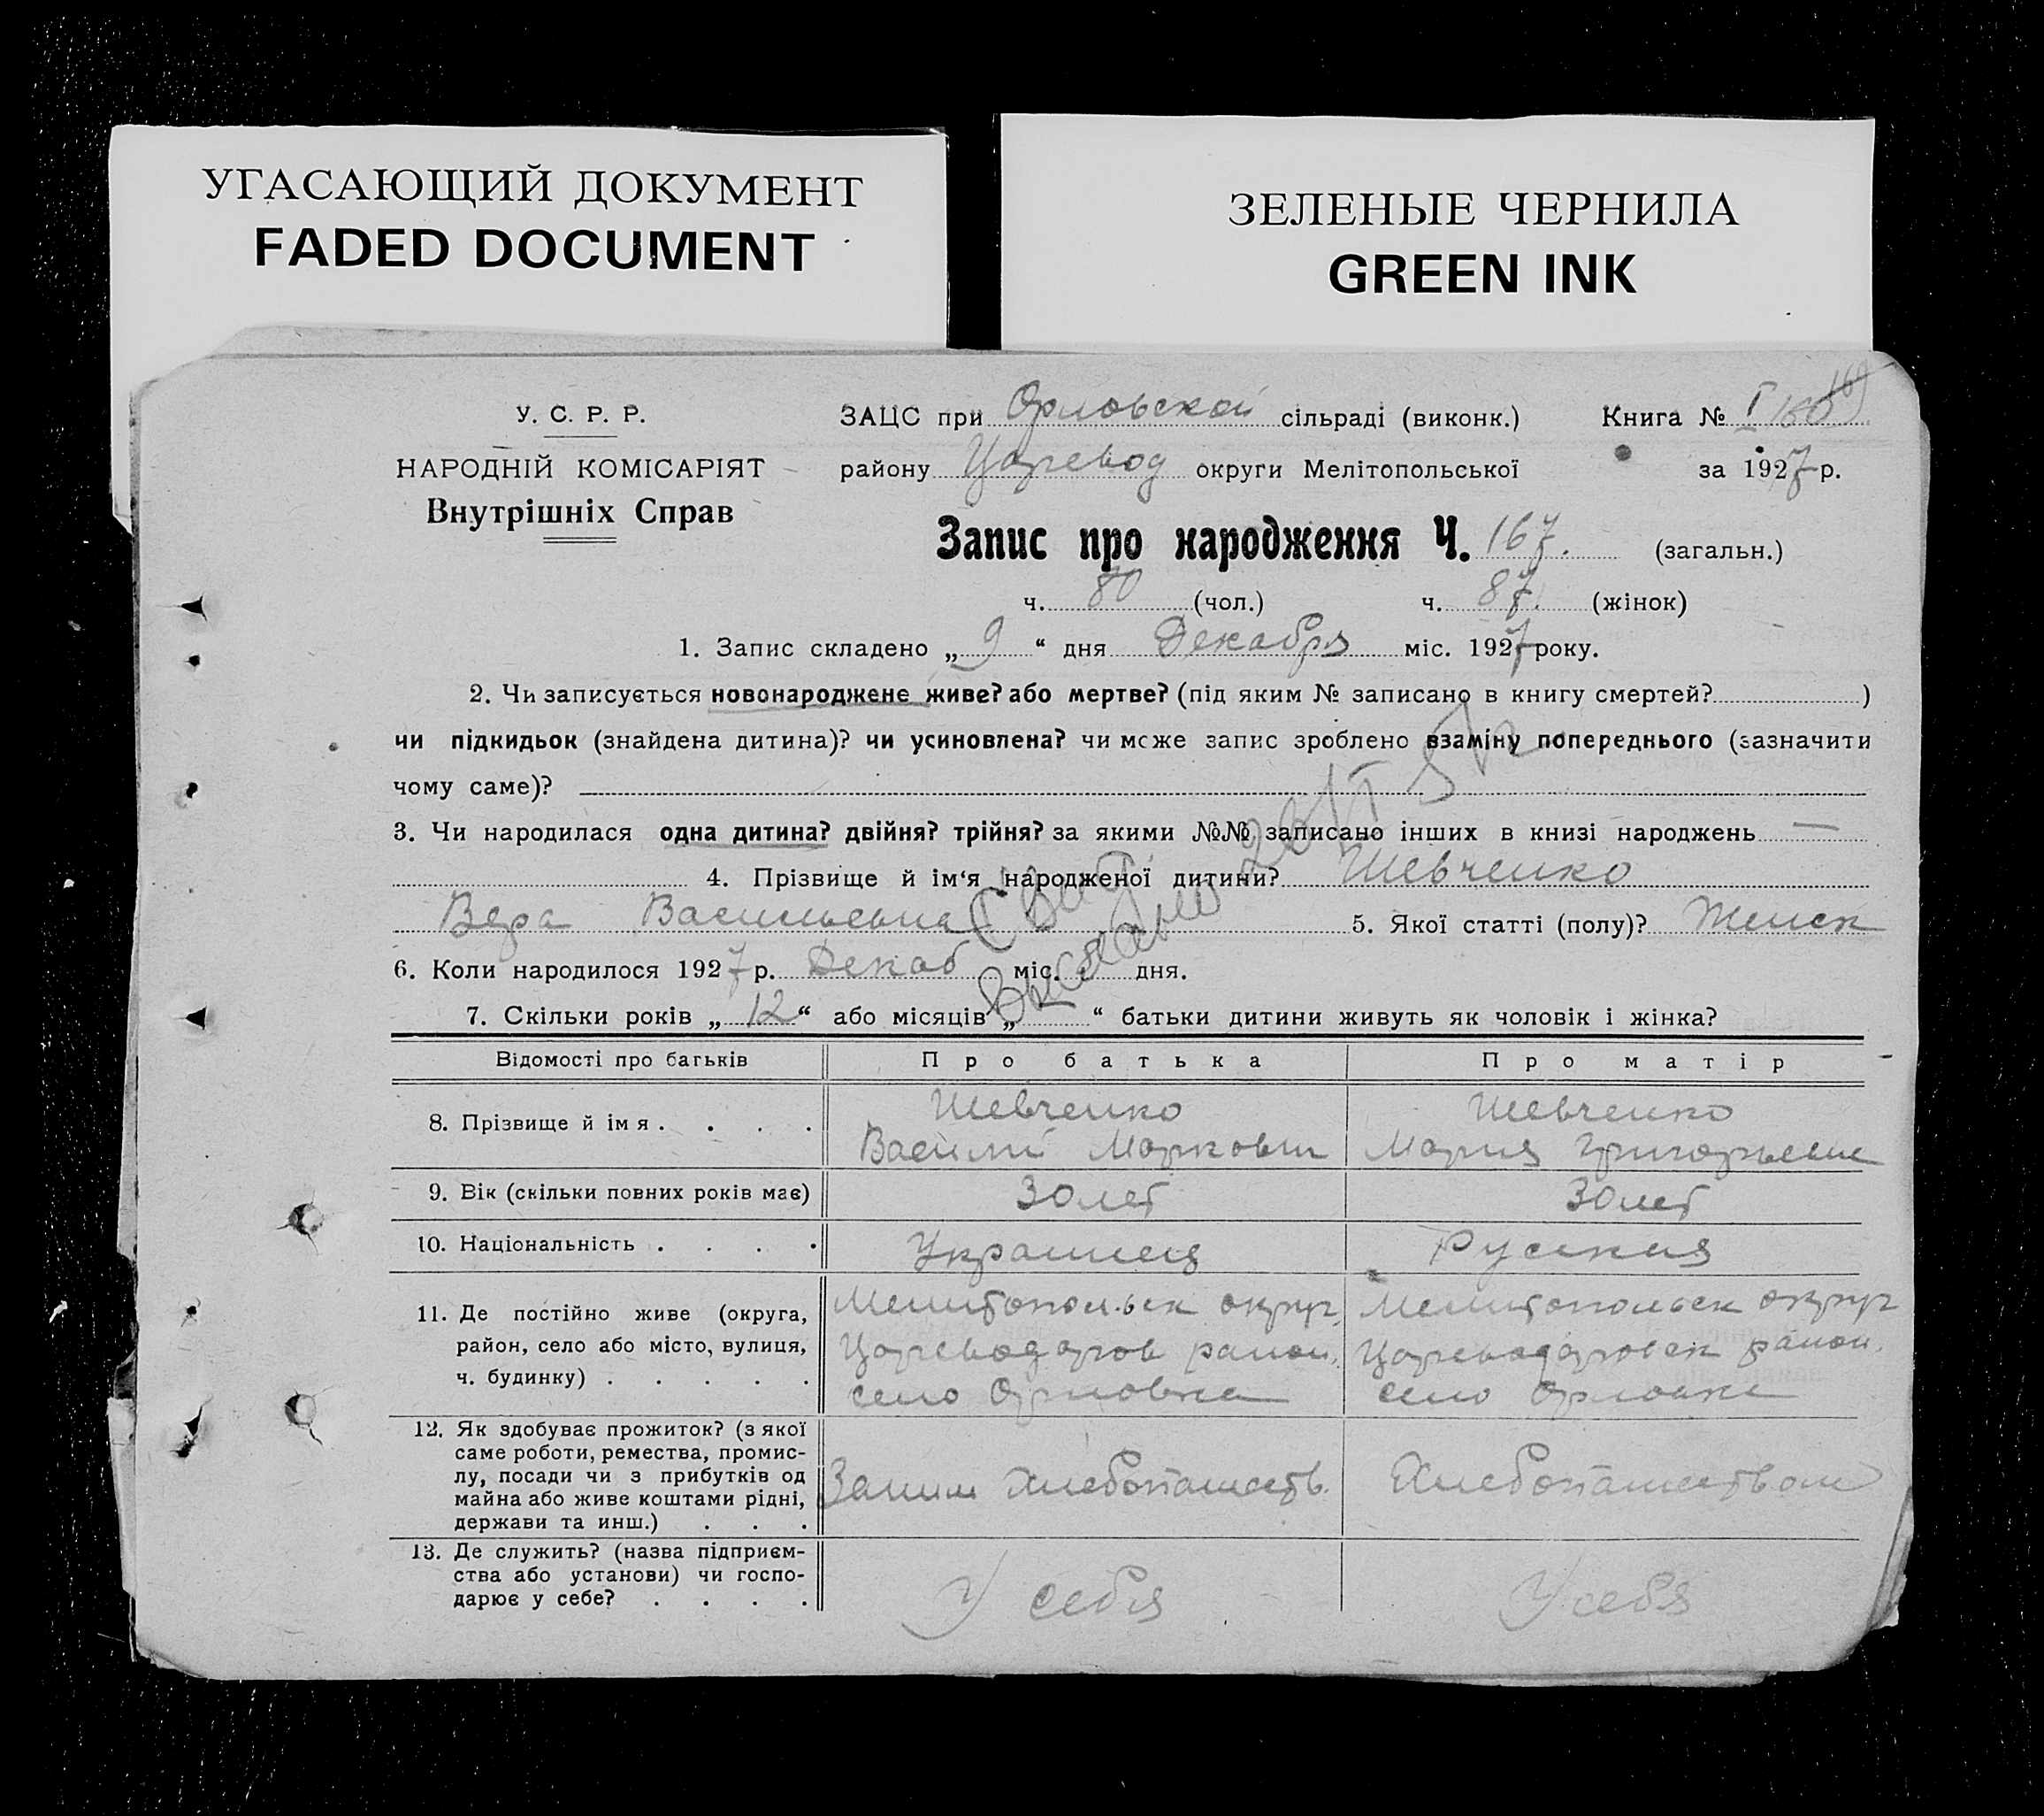 УГАСАЮЩИЙ ДОКУМЕНТ
FADED DOCUMENT
ЗЕЛЕНЫЕ ЧЕРНИЛА
GREEN INK
У. С. Р. Р.
НАРОДНІЙ КОМІСАРІЯТ
Внутрішніх Справ
ЗАЦС при Орловской сільраді (виконк.) Книга № I 160
району Царевод округи Мелітопольської за 1927 р.
Запис про народження Ч. 167. (загальн.)
ч. 80 (чол.) ч. 87. (жінок)
1. Запис складено „ 9 “ дня Декабря міс. 1927 року.
2. Чи записується новонароджене живе? або мертве? (під яким № записано в книгу смертей? )
чи підкидьок (знайдена дитина)? чи усиновлена? чи може запис зроблено взаміну попереднього (зазначити
чому саме)?
3. Чи народилася одна дитина? двійня? трійня? за якими №№ записано інших в книзі народжень —
4. Прізвище й ім‘я народженої дитини? Шевченко
Вера Васильевна 5. Якої статті (полу)? Женск
6. Коли народилося 1927 р. Декаб міс. 8 дня.
7. Скільки років „ 12 “ або місяців „ “ батьки дитини живуть як чоловік і жінка?
Відомості про батьків Про батька Про матір
8. Прізвище й імя . . . . Шевченко Шевченко
Василий Маркович Мария Григорьевна
9. Вік (скільки повних років має) 30 лет 30 лет
10. Національність . . . . Украинец Руская
11. Де постійно живе (округа, Мелитопольск округ, Мелитопольск округ
район, село або місто, вулиця, Цареводаров район, Цареводаровск район,
ч. будинку) . . . . . село Орловка село Орловка
12. Як здобуває прожиток? (з якої
саме роботи, ремества, промис-
лу, посади чи з прибутків од Заним Хлебопашеств. Хлебопашеством
майна або живе коштами рідні,
держави та инш.) . . .
13. Де служить? (назва підприєм-
ства або установи) чи госпо- У себя У себя
дарює у себе? . . . .